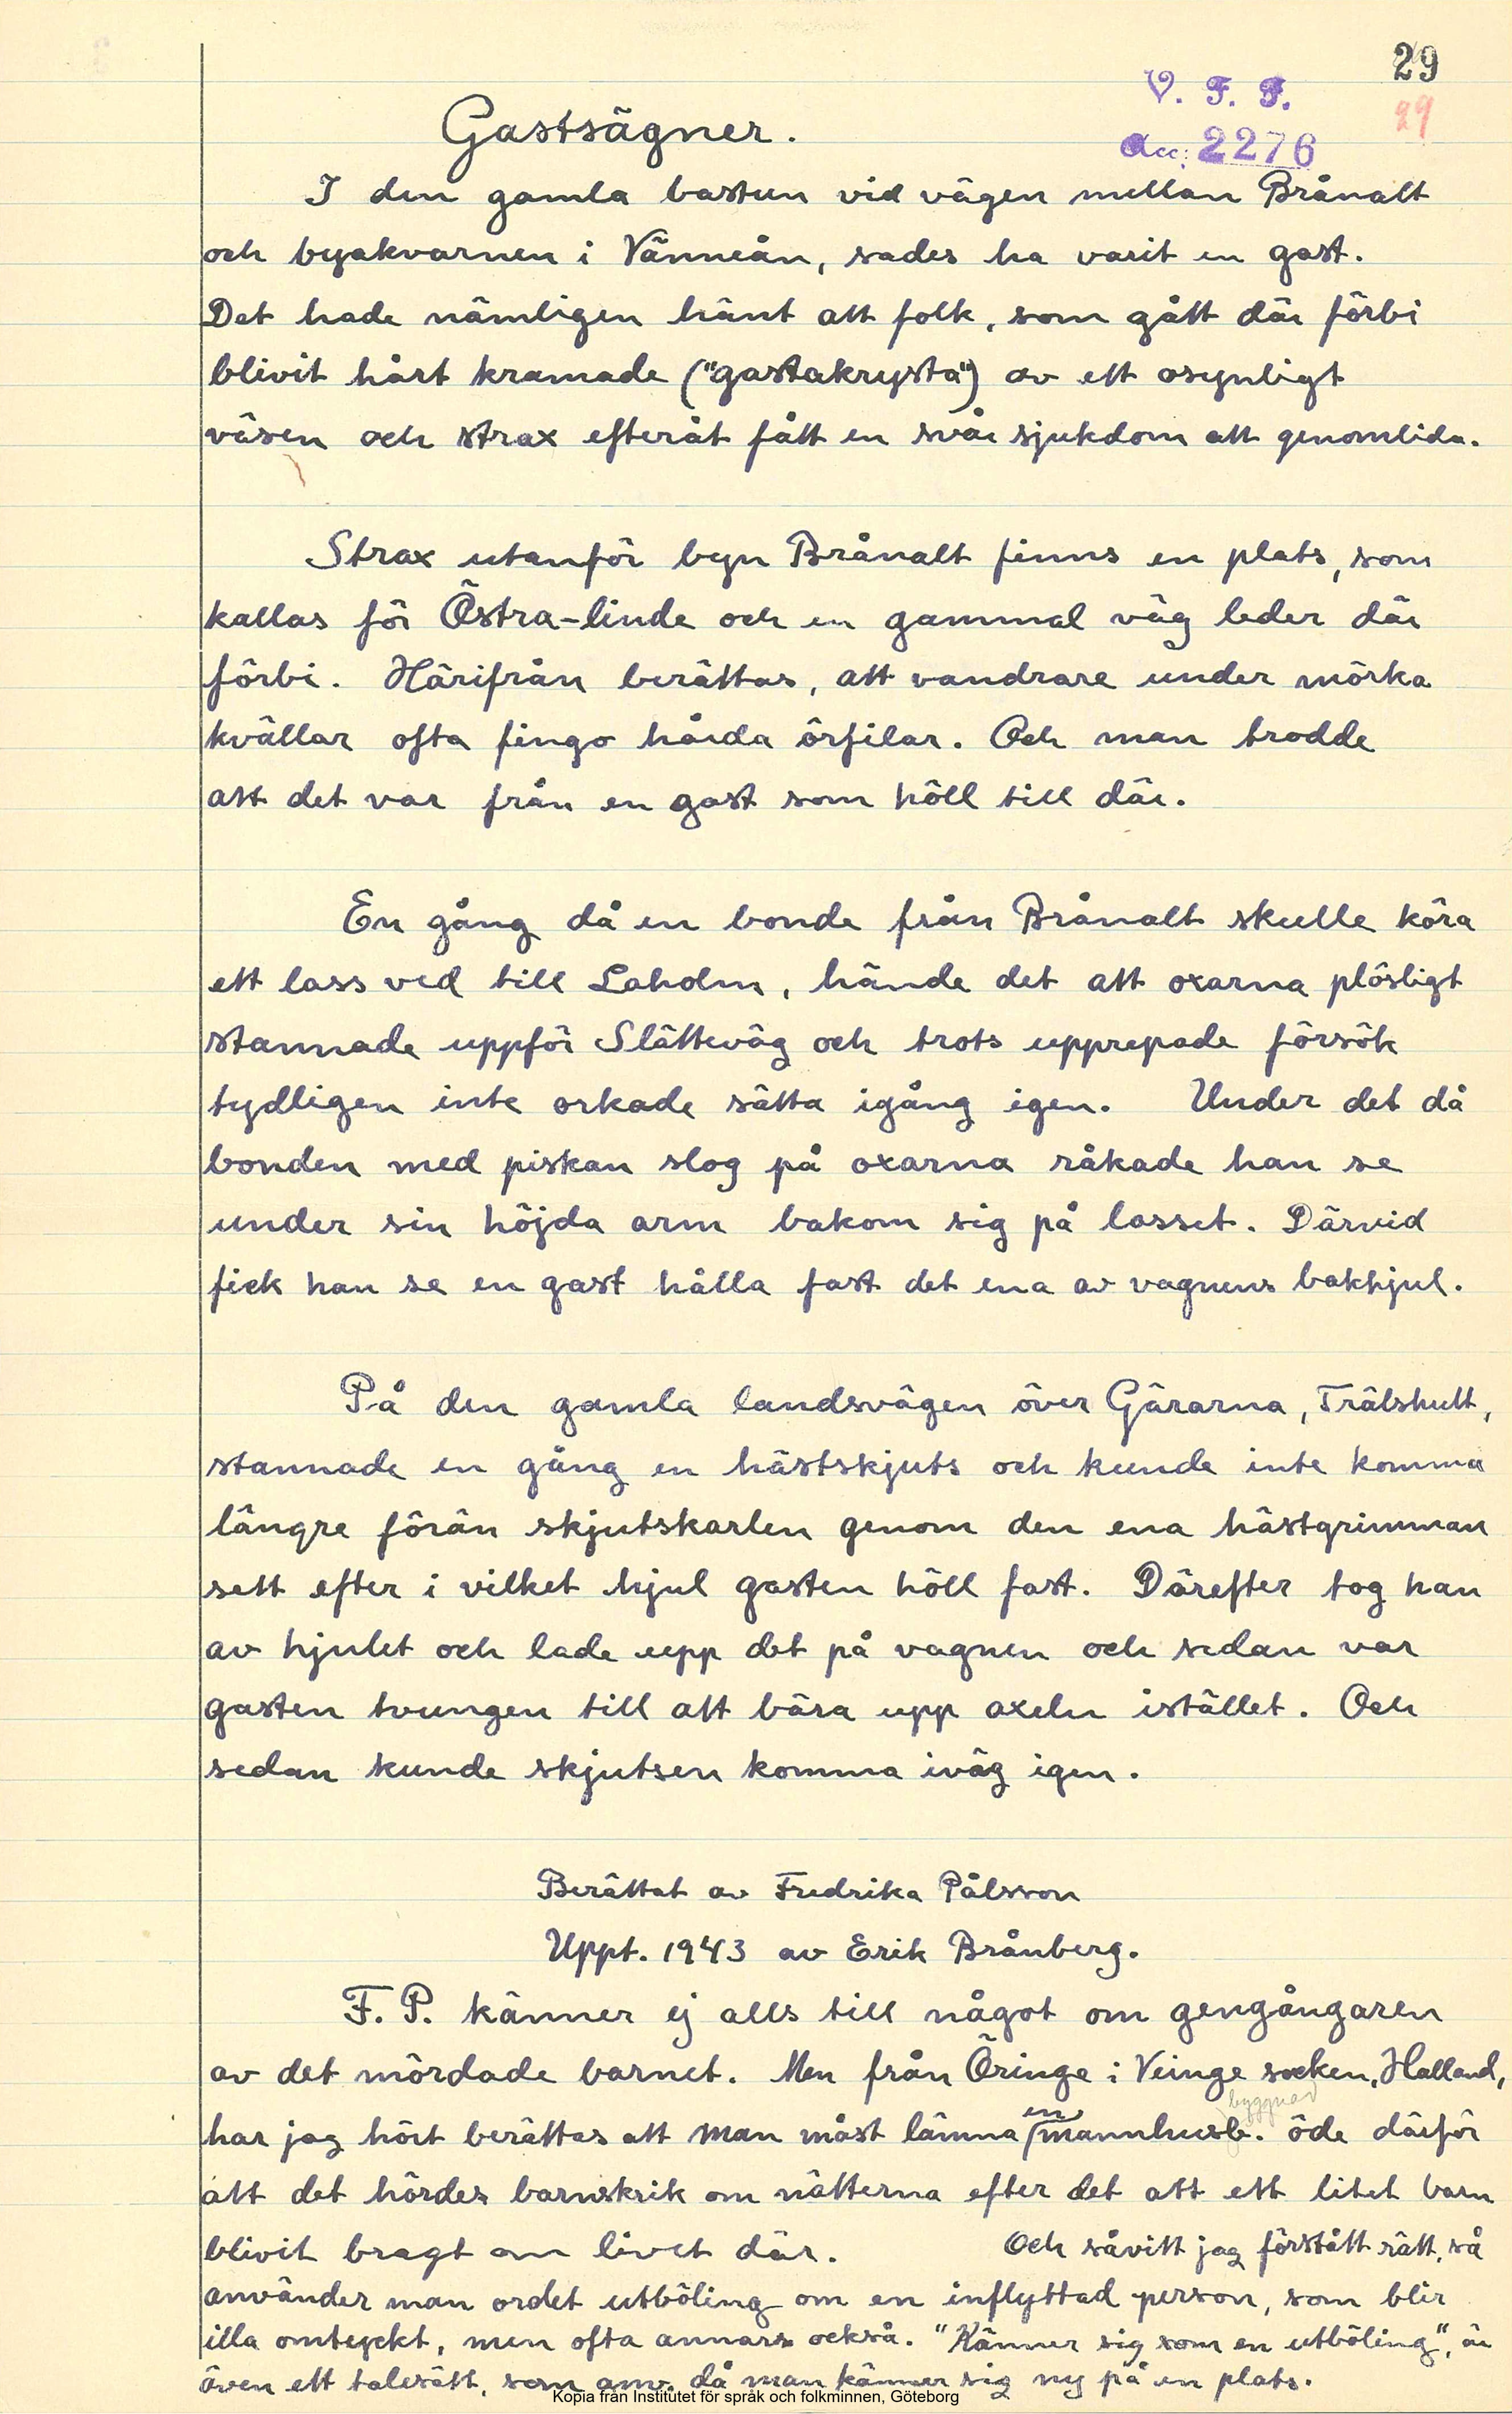 29
V. F. F.
29
Acc: 2276
Gastsägner.
I den gamla bastun vid vägen mellan Brånalt
och byakvarnen i Vänneån, sades ha varit en gast.
Det hade nämligen hänt att folk, som gått där förbi
blivit hårt kramade ("gastakrysta") av ett osynligt
väsen och strax efteråt fått en svår sjukdom att genomlida.
Strax utanför byn Brånalt finns en plats, som
kallas för Östra-linde och en gammal väg leder där
förbi. Härifrån berättas, att vandrare under mörka
kvällar ofta fingo hårda örfilar. Och man trodde
att det var från en gast som höll till där.
En gång då en bonde från Brånalt skulle köra
ett lass ved till Laholm, hände det att oxarna plösligt
stannade uppför Slätteväg och trots upprepade försök
tydligen inte orkade sätta igång igen. Under det då
bonden med piskan slog på oxarna råkade han se
under sin höjda arm bakom sig på lasset. Därvid
fick han se en gast hålla fast det ena av vagnens bakhjul.
På den gamla landsvägen över Gärarna, Trälshult,
stannade en gång en hästskjuts och kunde inte komma
längre förän skjutskarlen genom den ena hästgrimman
sett efter i vilket hjul gasten höll fast. Därefter tog han
av hjulet och lade upp det på vagnen och sedan var
gasten tvungen till att bära upp axeln istället. Och
sedan kunde skjutsen komma iväg igen.
Berättat av Fredrika Pålsson
Uppt. 1943 av Erik Brånberg.
F. P. känner ej alls till något om gengångaren
av det mördade barnet. Men från Öringe i Veinge socken, Halland,
byggnad
har jag hört berättas att man måst lämna en mannhusb. öde därför
att det hördes barnskrik om nätterna efter det att ett litet barn
blivit bragt om livet där. Och såvitt jag förstått rätt, så
använder man ordet utböling om en inflyttad person, som blir
illa omtyckt, men ofta annars också. "Känner sig som en utböling", är
även ett talesätt, som anv. då man känner sig ny på en plats.
Kopia från Institutet för språk och folkminnen, Göteborg